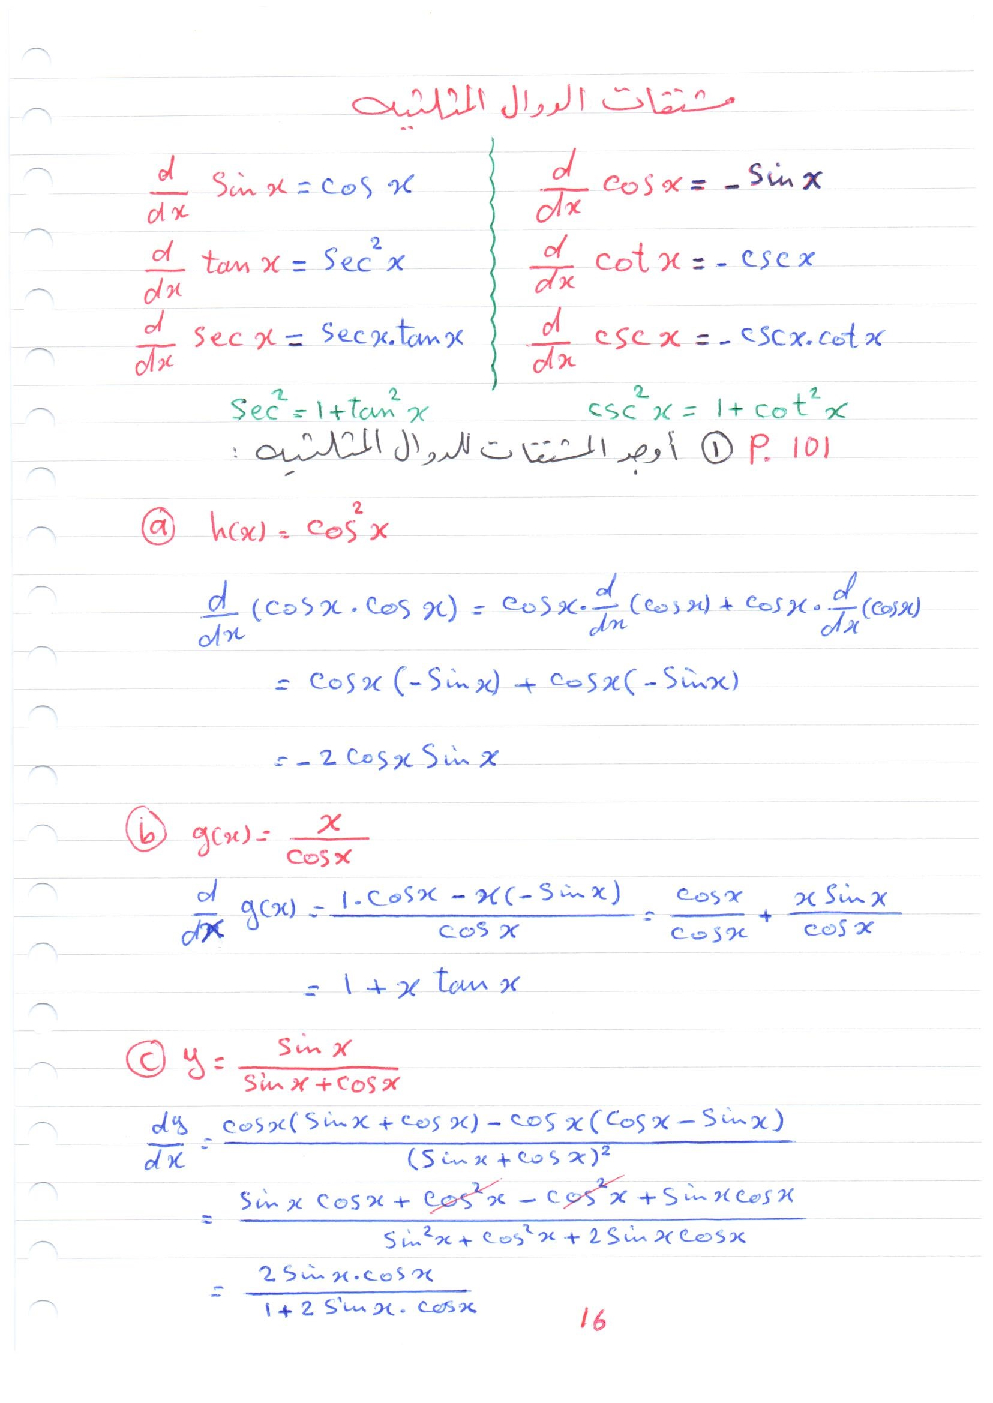 مشتقات الدوال المثلثيه
d/dx Sin x = cos x    d/dx cos x = - Sin x
d/dx tan x = Sec² x    d/dx cot x = - csc x
d/dx Sec x = Sec x . tan x    d/dx csc x = - csc x . cot x
Sec² = 1 + tan² x    csc² x = 1 + cot² x
P. 101 ① أوجد المشتقات للدوال المثلثيه :
ⓐ h(x) = cos² x
d/dx (cos x . cos x) = cos x . d/dx (cos x) + cos x . d/dx (cos x)
= cos x (- Sin x) + cos x (- Sin x)
= - 2 cos x Sin x
ⓑ g(x) = x / cos x
d/dx g(x) = (1 . cos x - x (- Sin x)) / cos x = cos x / cos x + x Sin x / cos x
= 1 + x tan x
ⓒ y = Sin x / (Sin x + cos x)
dy/dx = (cos x (Sin x + cos x) - cos x (cos x - Sin x)) / (Sin x + cos x)²
= (Sin x cos x + cos² x - cos² x + Sin x cos x) / (Sin² x + cos² x + 2 Sin x cos x)
= 2 Sin x . cos x / (1 + 2 Sin x . cos x)
16